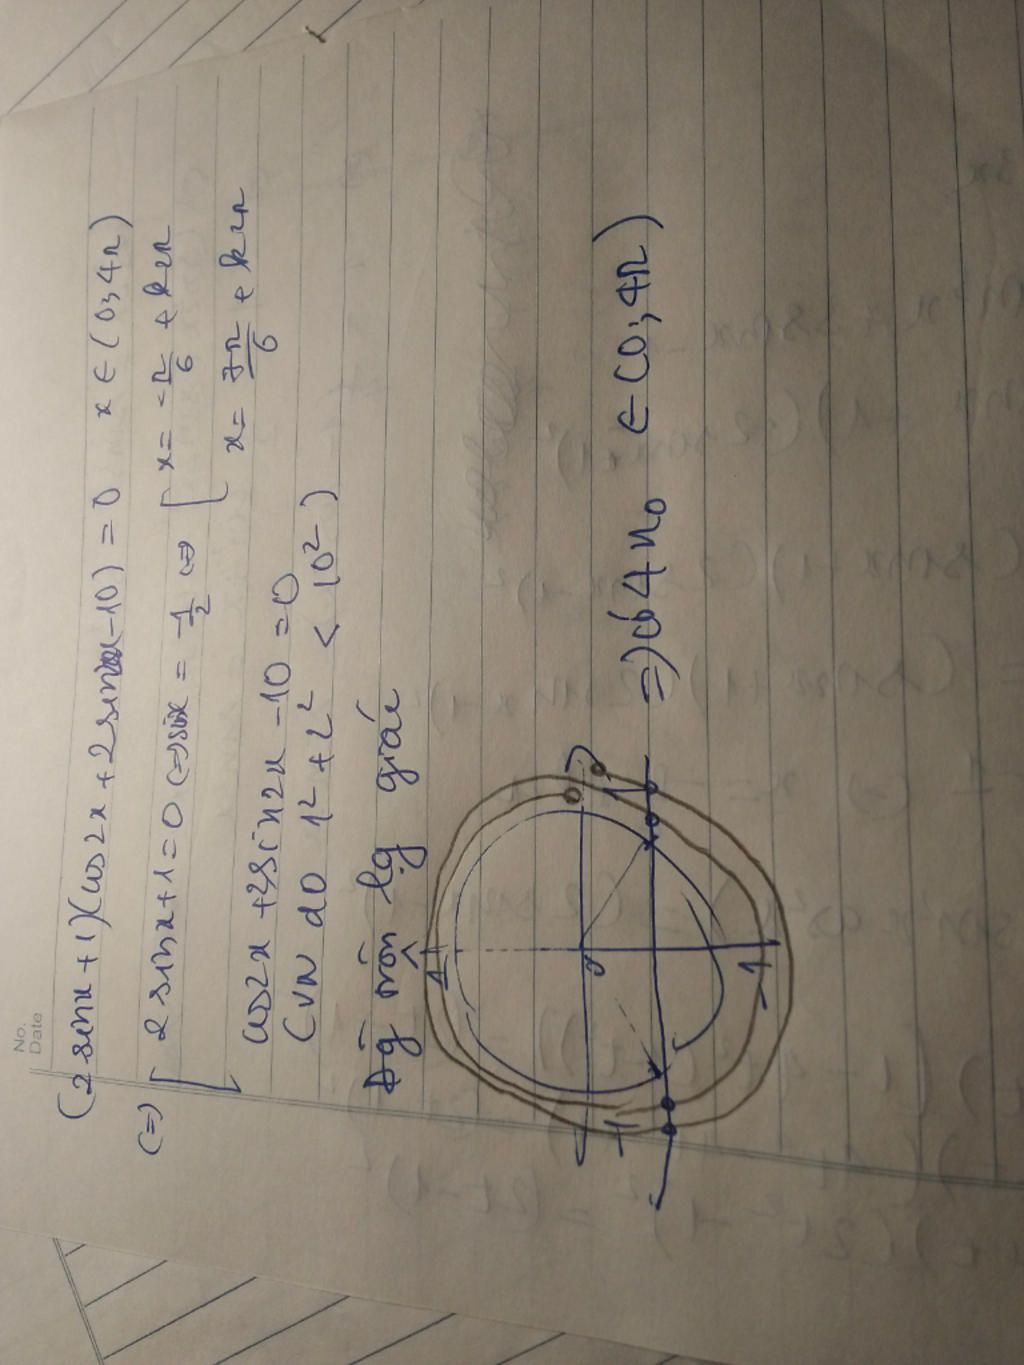 No.
Date
(2 sinx + 1)(cos2x + 2sin2x - 10) = 0 x ∈ (0; 4π)
(=) [ 2 sinx + 1 = 0 (=) sinx = -1/2 (=) [ x = -π/6 + k2π
x = 7π/6 + k2π
cos2x + 2sin2x - 10 = 0
(VN do 1² + 2² < 10²)
Đg tròn lg giác
1
0
-1 1
-1
=) có 4 n₀ ∈ (0; 4π)